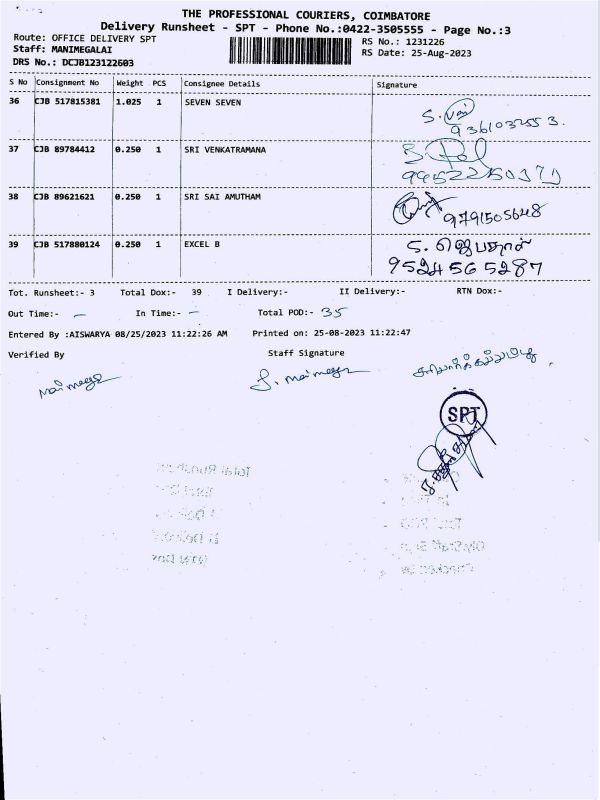 THE PROFESSIONAL COURIERS, COIMBATORE
Delivery Runsheet - SPT - Phone No.:0422-3505555 - Page No.:3
Route: OFFICE DELIVERY SPT RS No.: 1231226
Staff: MANIMEGALAI RS Date: 25-Aug-2023
DRS No.: DCJB123122603
S No Consignment No Weight PCS Consignee Details Signature
36 CJB 517815381 1.025 1 SEVEN SEVEN
9361032553.
37 CJB 89784412 0.250 1 SRI VENKATRAMANA
38 CJB 89621621 0.250 1 SRI SAI AMUTHAM
9791505648
39 CJB 517880124 0.250 1 EXCEL B
9524565287
Tot. Runsheet:- 3 Total Dox:- 39 I Delivery:- II Delivery:- RTN Dox:-
Out Time:- - In Time:- - Total POD:- 35
Entered By :AISWARYA 08/25/2023 11:22:26 AM Printed on: 25-08-2023 11:22:47
Verified By Staff Signature
SPT